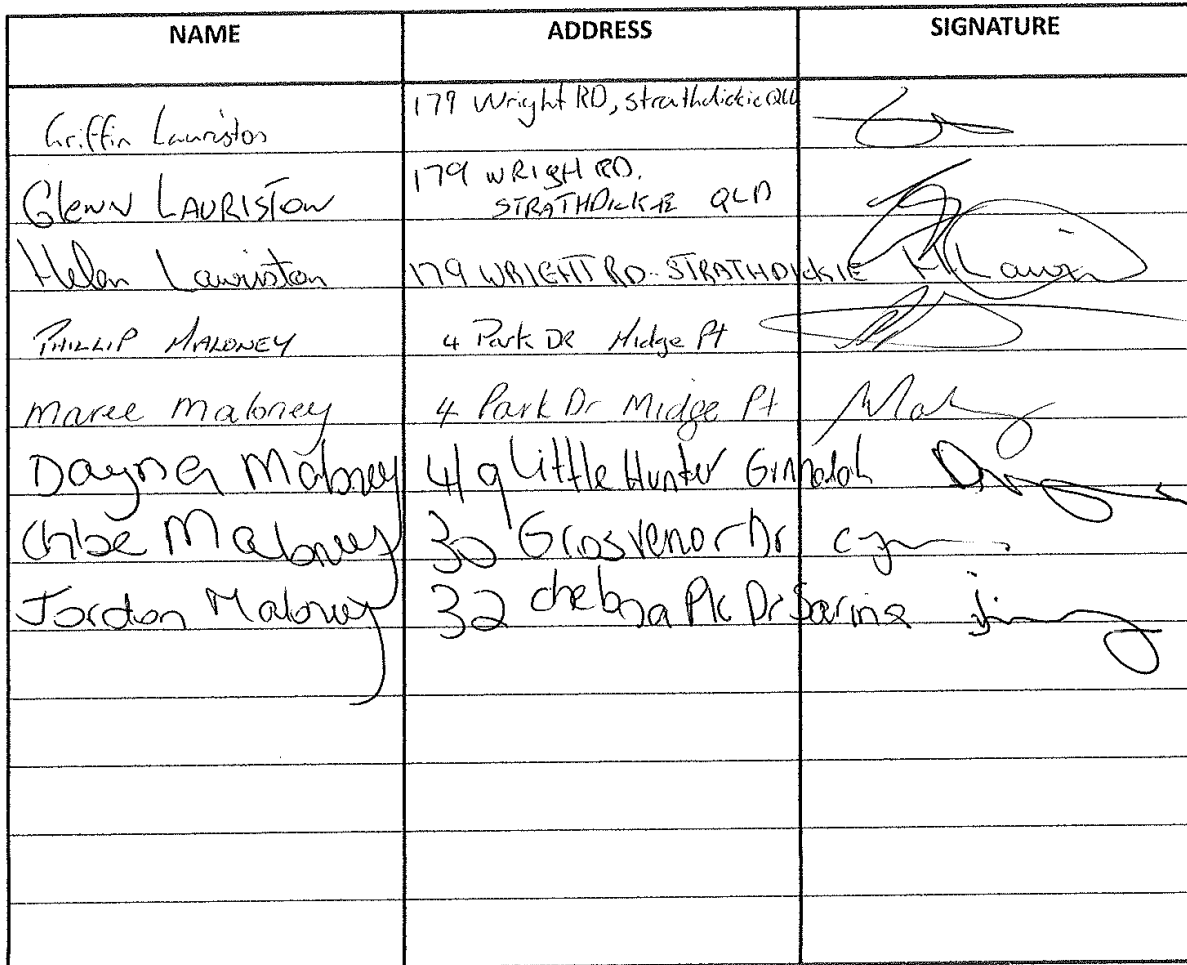 NAME ADDRESS SIGNATURE
Griffin Lauriston 179 Wright RD, Strathdickie QLD
Glenn LAURISTON 179 WRIGH RD.
STRATHDICKIE QLD
Helen Lauriston 179 WRIGHT RD. STRATHDICKIE H. Lauri
PHILLIP MALONEY 4 Park DR Midge Pt
Maree Maloney 4 Park Dr Midge Pt
Dayna Maloney 4/9 Little Hunter
Chloe Maloney 30 Grosvenor Dr
Jordan Maloney 32 Chelsea Pk Dr Sarina